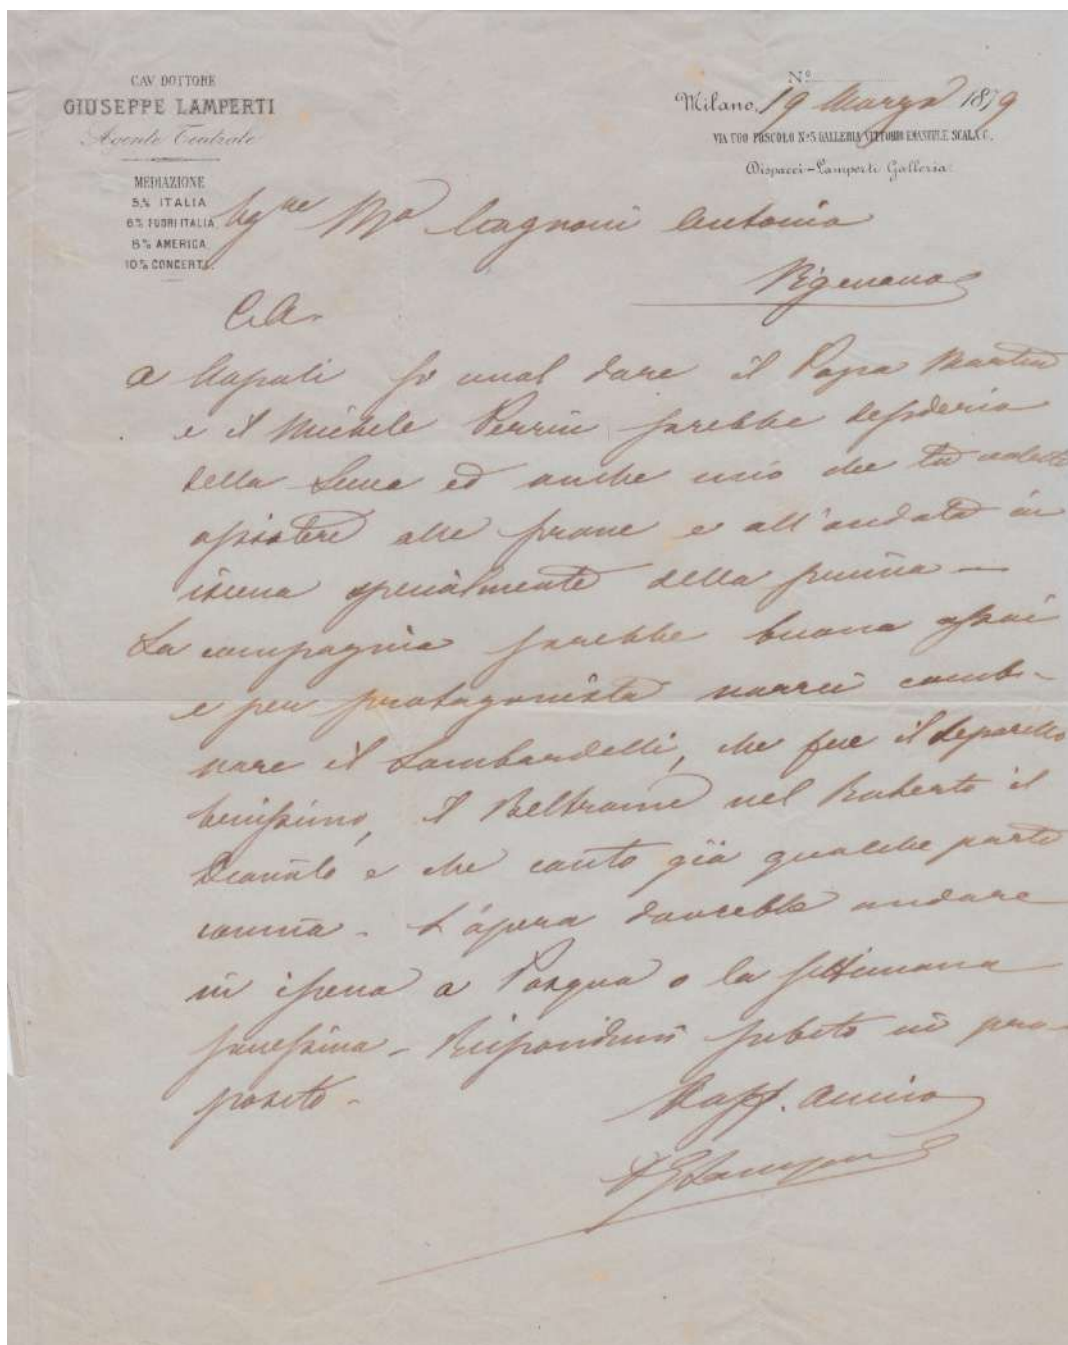 CAV. DOTTORE
GIUSEPPE LAMPERTI
Agente Teatrale
MEDIAZIONE
5% ITALIA
6% FUORI ITALIA
8% AMERICA
10% CONCERTI
Nº
Milano, 19 Marzo 1879
VIA UGO FOSCOLO Nº 5 GALLERIA VITTORIO EMANUELE SCALA C.
Dispacci-Lamperti Galleria
Mº Cagnoni Antonio
Vigevano
C. A.
A Napoli si vuol dare il Papà Martin
e il Michele Perrin sarebbe desiderio
della ed anche mio che tu volessi
assistere alle prove e all'andata in
iscena specialmente della prima —
La compagnia sarebbe buona assai
e per protagonista vorrei combi-
nare il Lombardelli, che fece il
benissimo, il Beltramo nel Roberto il
Diavolo e che cantò già qualche parte
comica - L'opera dovrebbe andare
in iscena a Pasqua o la settimana
successiva - Rispondimi subito in pro-
posito -
Aff. Amico
GLamperti